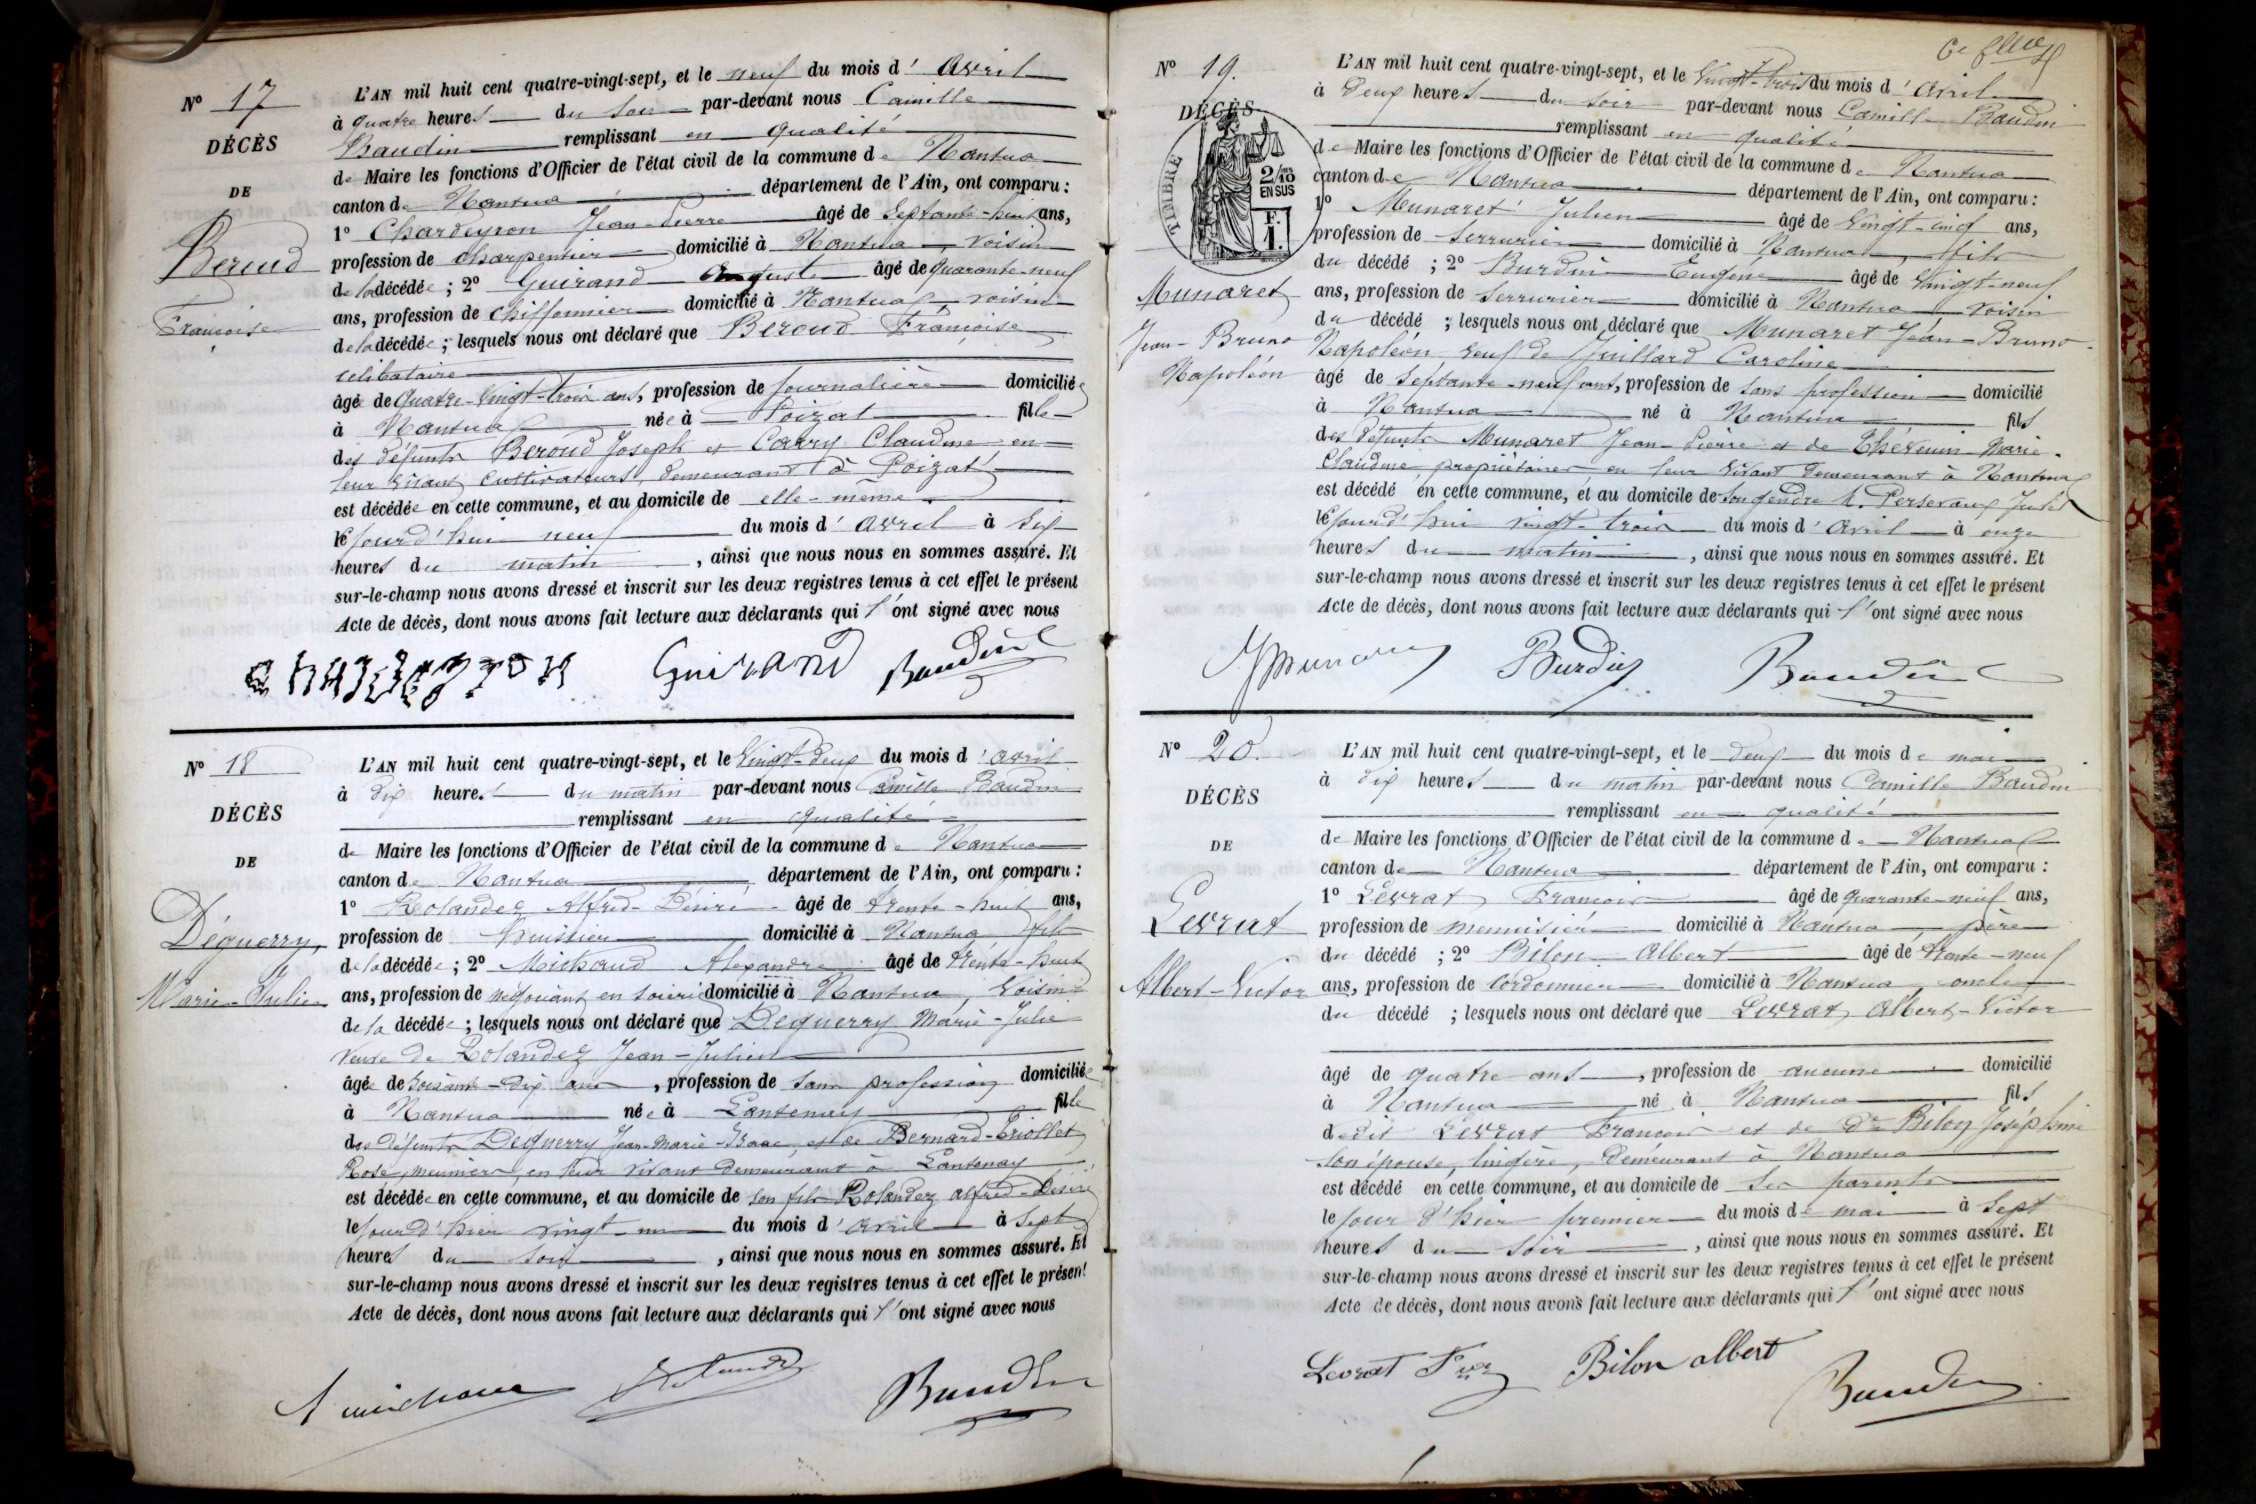 Nº 17
DÉCÈS
DE
Beroud
Françoise
L'AN mil huit cent quatre-vingt-sept, et le neuf du mois d'avril
à quatre heures du soir par-devant nous Camille
Baudin remplissant en qualité
de Maire les fonctions d'Officier de l'état civil de la commune de Nantua
canton de Nantua département de l'Ain, ont comparu :
1º Chardeyron Jean-Pierre âgé de Septante-huit ans,
profession de charpentier domicilié à Nantua, voisin
de la décédée ; 2º Guirand Auguste âgé de quarante-neuf
ans, profession de chiffonnier domicilié à Nantua, voisin
de la décédée ; lesquels nous ont déclaré que Beroud Françoise
célibataire
âgée de quatre-vingt-trois ans, profession de journalière domiciliée
à Nantua née à Poizat fille
des défunts Beroud Joseph et Carry Claudine en
leur vivant cultivateurs, demeurant à Poizat
est décédée en cette commune, et au domicile de elle-même
le jourd'hui neuf du mois d'avril à six
heures du matin, ainsi que nous nous en sommes assuré. Et
sur-le-champ nous avons dressé et inscrit sur les deux registres tenus à cet effet le présent
Acte de décès, dont nous avons fait lecture aux déclarants qui l'ont signé avec nous
chardeyron Guirand Baudin
Nº 18
DÉCÈS
DE
Déguerry,
Marie-Julie
L'AN mil huit cent quatre-vingt-sept, et le vingt-deux du mois d'avril
à dix heures du matin par-devant nous Camille Baudin
remplissant en qualité
de Maire les fonctions d'Officier de l'état civil de la commune de Nantua
canton de Nantua département de l'Ain, ont comparu :
1º Rolandez Alfred-Désiré âgé de trente-huit ans,
profession de huissier domicilié à Nantua fils
de la décédée ; 2º Michaud Alexandre âgé de trente-huit
ans, profession de négociant en soierie domicilié à Nantua, voisin
de la décédée ; lesquels nous ont déclaré que Déguerry Marie-Julie
veuve de Rolandez Jean-Julien
âgée de soixante-dix ans, profession de sans profession domiciliée
à Nantua née à Lantenay fille
des défunts Deguerry Jean-Marie-Isaac, et de Bernard-Triollet
Rose, meuniers, en leur vivant demeurant à Lantenay
est décédée en cette commune, et au domicile de son fils Rolandez alfred-Désiré
le jour d'hier vingt-un du mois d'avril à sept
heures du soir, ainsi que nous nous en sommes assuré. Et
sur-le-champ nous avons dressé et inscrit sur les deux registres tenus à cet effet le présent
Acte de décès, dont nous avons fait lecture aux déclarants qui l'ont signé avec nous
A michaud Rolandez Baudin
Nº 19.
DÉCÈS
TIMBRE
2/10 EN SUS
F. 1.
Munaret
Jean-Bruno
Napoléon
L'AN mil huit cent quatre-vingt-sept, et le vingt-trois du mois d'avril
à deux heures du soir par-devant nous Camille Baudin
remplissant en qualité
de Maire les fonctions d'Officier de l'état civil de la commune de Nantua
canton de Nantua département de l'Ain, ont comparu :
1º Munaret Julien âgé de vingt-cinq ans,
profession de serrurier domicilié à Nantua, fils
du décédé ; 2º Burdin Eugène âgé de vingt-neuf
ans, profession de serrurier domicilié à Nantua voisin
du décédé ; lesquels nous ont déclaré que Munaret Jean-Bruno-
Napoléon veuf de Juillard Caroline
âgé de septante-neuf ans, profession de sans profession domicilié
à Nantua né à Nantua fils
des défunts Munaret Jean-Pierre et de Thévenin Marie-
Claudine propriétaires en leur vivant demeurant à Nantua
est décédé en cette commune, et au domicile de son gendre M. Perseraux Jules
le jourd'hui vingt-trois du mois d'avril à onze
heures du matin, ainsi que nous nous en sommes assuré. Et
sur-le-champ nous avons dressé et inscrit sur les deux registres tenus à cet effet le présent
Acte de décès, dont nous avons fait lecture aux déclarants qui l'ont signé avec nous
JMunaret Burdin Baudin
Nº 20.
DÉCÈS
DE
Levrat
Albert-Victor
L'AN mil huit cent quatre-vingt-sept, et le deux du mois de mai
à dix heures du matin par-devant nous Camille Baudin
remplissant en qualité
de Maire les fonctions d'Officier de l'état civil de la commune de Nantua
canton de Nantua département de l'Ain, ont comparu :
1º Levrat François âgé de quarante-neuf ans,
profession de menuisier domicilié à Nantua père
du décédé ; 2º Bilon Albert âgé de trente-neuf
ans, profession de cordonnier domicilié à Nantua, oncle
du décédé ; lesquels nous ont déclaré que Levrat, Albert-Victor
âgé de quatre ans, profession de aucune domicilié
à Nantua né à Nantua fils
dudit Levrat François et de De Bilon Joséphine
son épouse, lingère, demeurant à Nantua
est décédé en cette commune, et au domicile de ses parents
le jour d'hier premier du mois de mai à sept
heures du soir, ainsi que nous nous en sommes assuré. Et
sur-le-champ nous avons dressé et inscrit sur les deux registres tenus à cet effet le présent
Acte de décès, dont nous avons fait lecture aux déclarants qui l'ont signé avec nous
Levrat Bilon albert Baudin